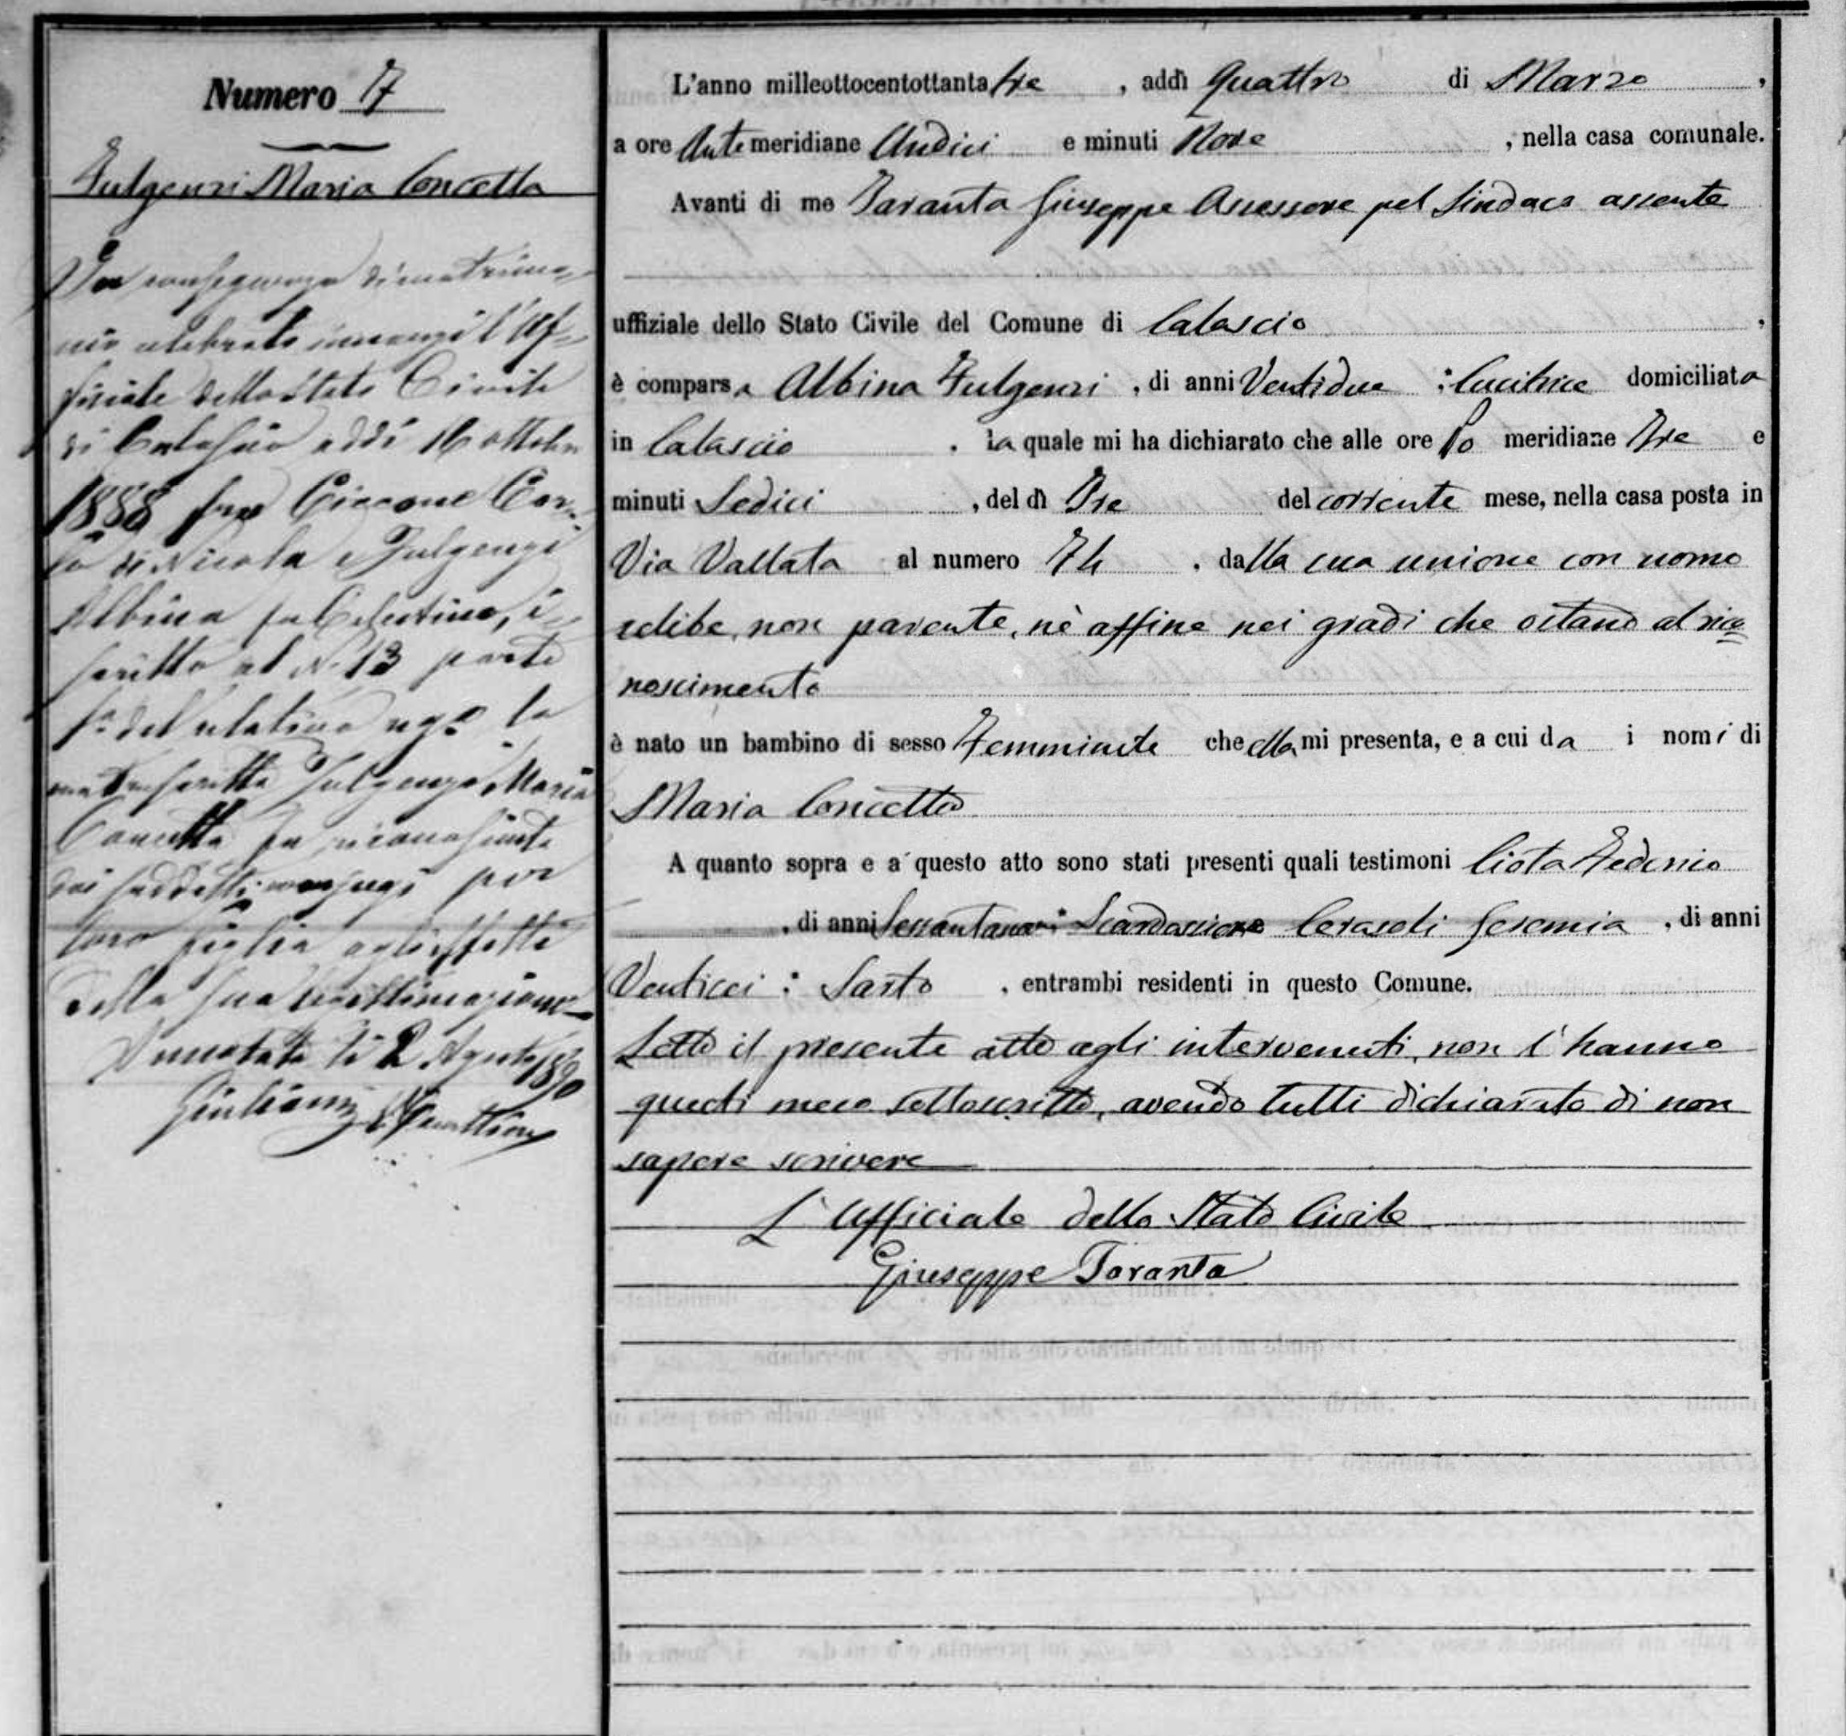 Numero 7
Fulgenzi Maria Concetta
In conseguenza di matrimo-
nio celebrato innanzi l'Uf-
ficiale dello Stato Civile
di Calascio addì 16 ottobre
1888 fra Ciccone Car-
lo di Nicola e Fulgenzi
Albina fu Celestino, i-
scritto al N. 13 parte
del relativo la
Fulgenzi Maria
Concetta fu riconosciuta
dai suddetti conjugi per
loro figlia agli effetti
della sua legittimazione
Annotata li 2 Agosto 1890
L'anno milleottocentottanta tre , addì Quattro di Marzo ,
a ore Ante meridiane Undici e minuti Nove , nella casa comunale.
Avanti di me Taranta Giuseppe Assessore pel Sindaco assente
uffiziale dello Stato Civile del Comune di Calascio ,
è comparsa Albina Fulgenzi , di anni Ventidue : Cucitrice domiciliata
in Calascio , la quale mi ha dichiarato che alle ore Po meridiane Tre e
minuti Sedici , del dì Tre del corrente mese, nella casa posta in
Via Vallata al numero 74 , dalla sua unione con uomo
celibe, non parente, nè affine nei gradi che ostano al rico=
noscimento
è nato un bambino di sesso Femminile che ella mi presenta, e a cui da i nomi di
Maria Concetta
A quanto sopra e a questo atto sono stati presenti quali testimoni Ciota Federico
, di anni : Scardassiere Cerasoli Geremia , di anni
Ventisei : Sarto , entrambi residenti in questo Comune.
Letto il presente atto agli intervenuti, non l'hanno
questi meco sottoscritto, avendo tutti dichiarato di non
sapere scrivere
L'Ufficiale dello Stato Civile
Giuseppe Taranta